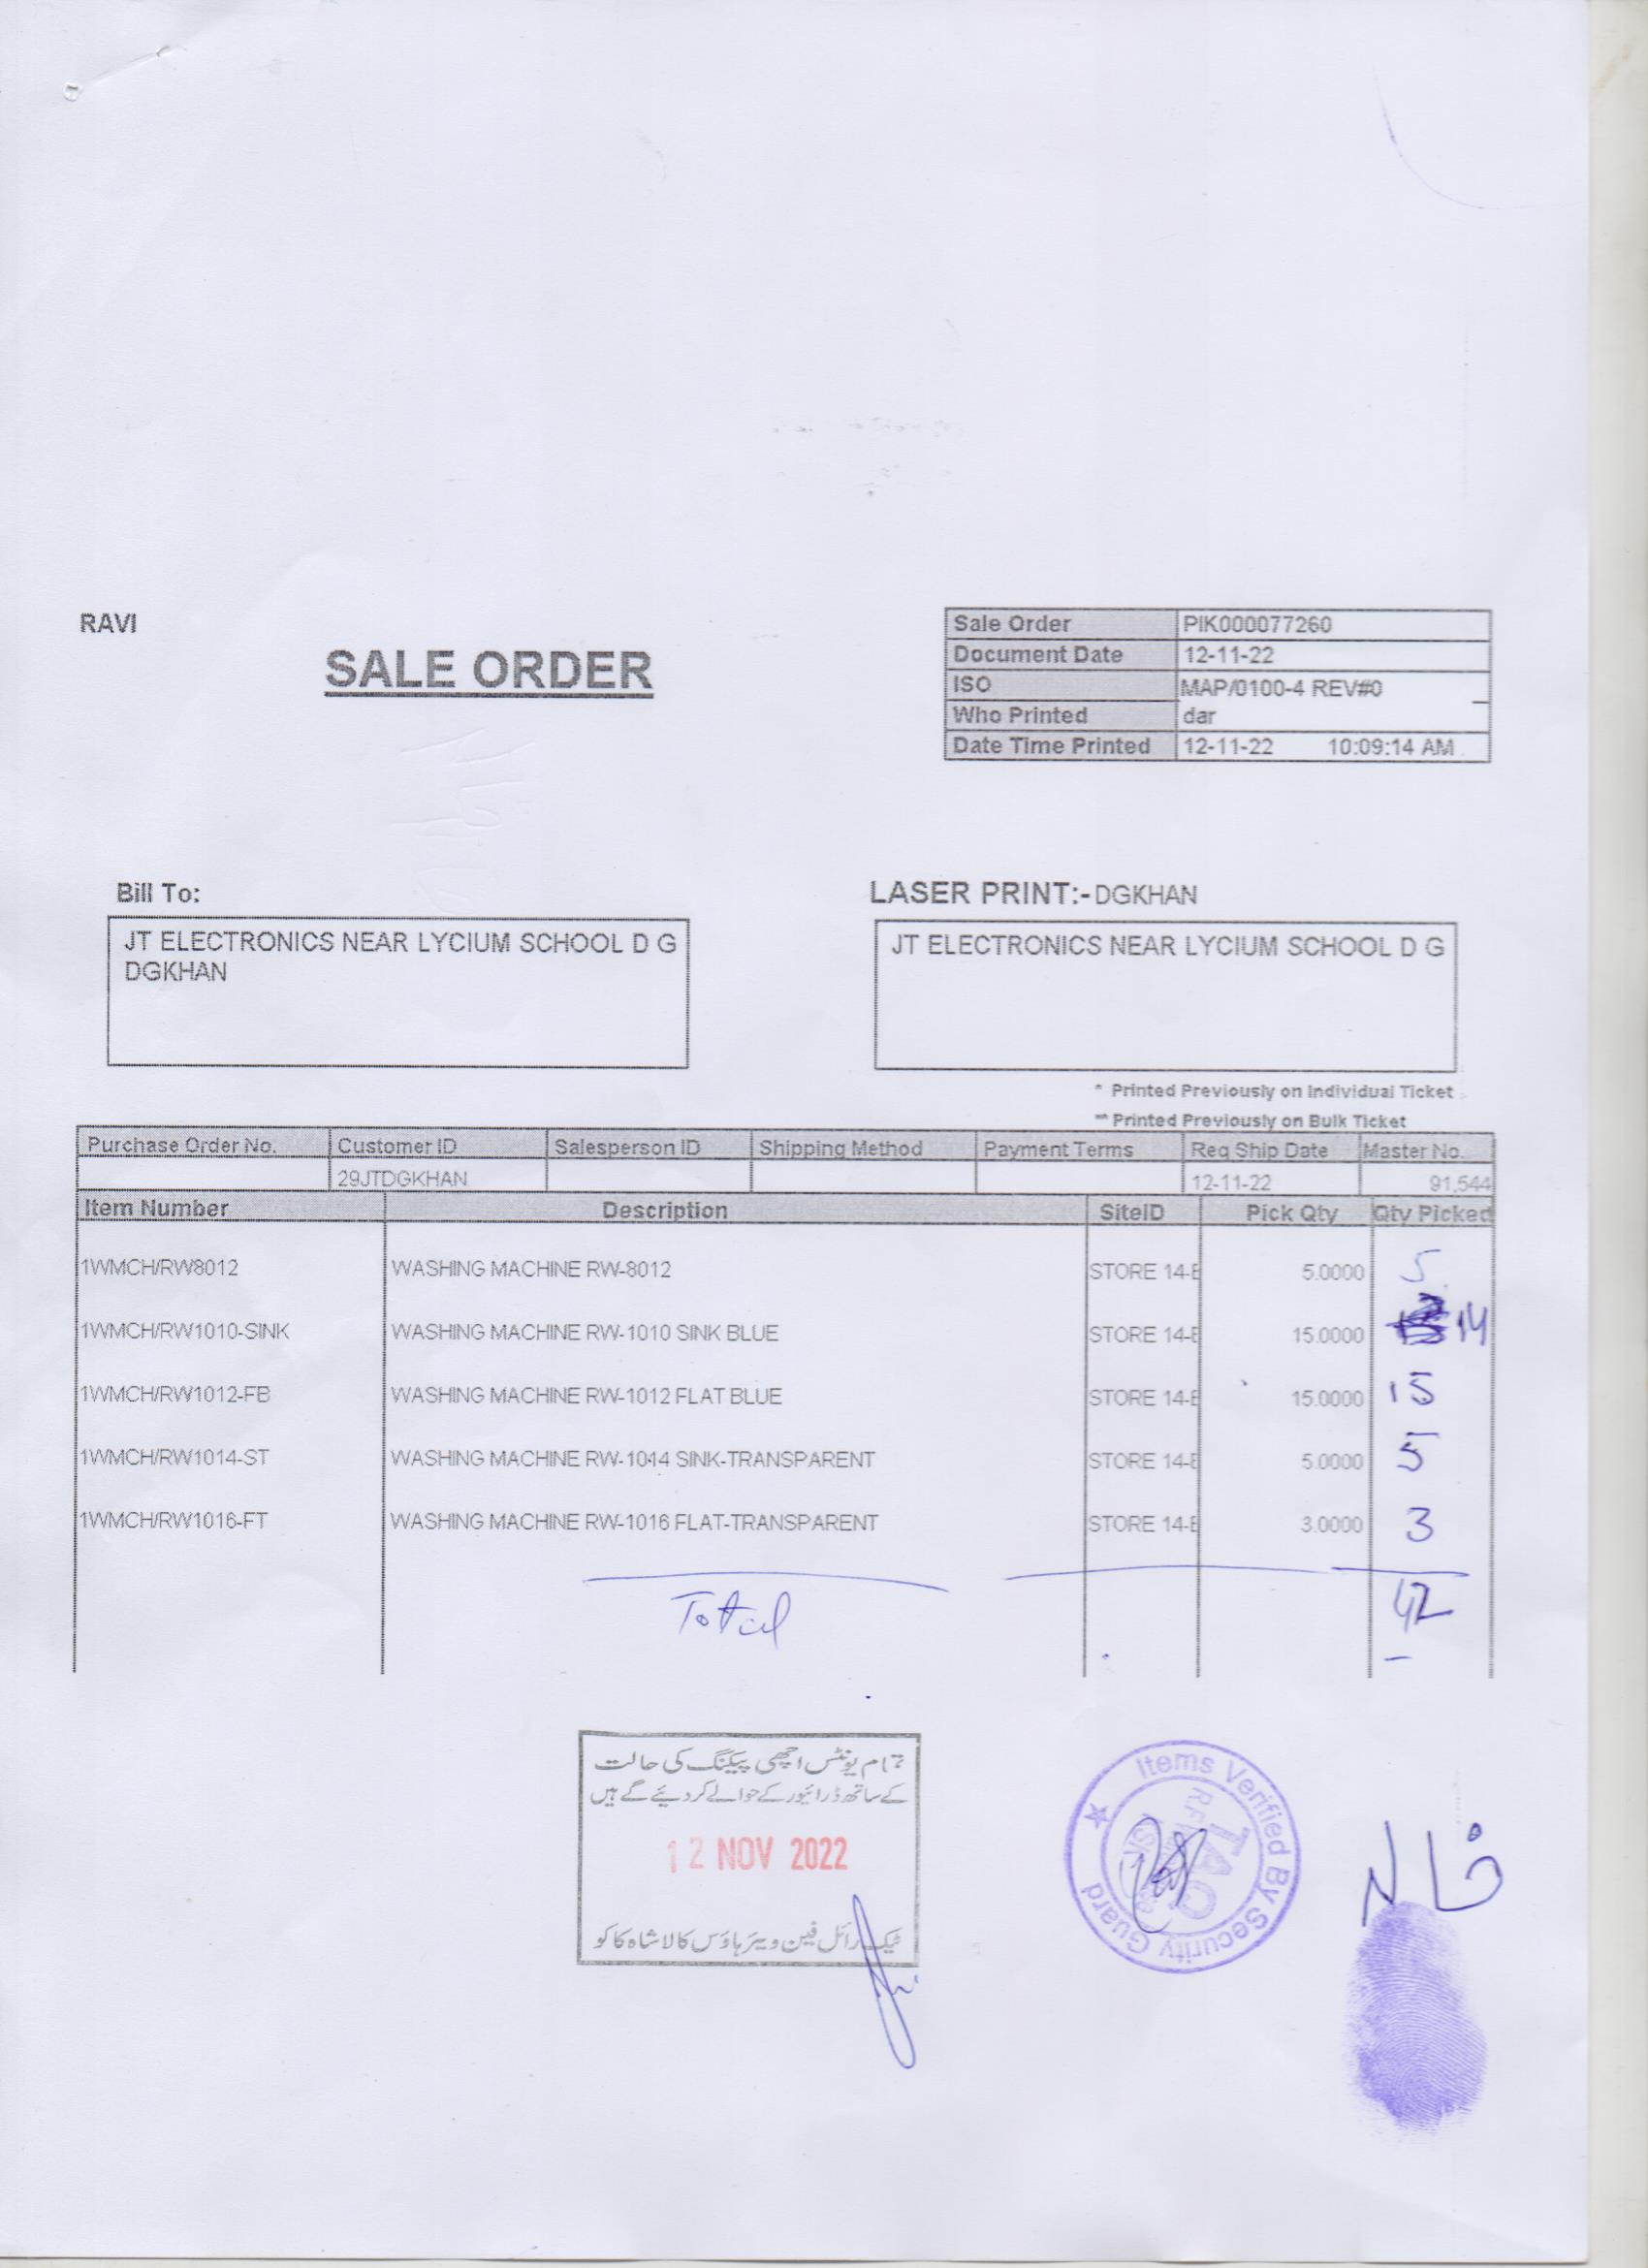 RAVI
SALE ORDER
Sale Order PIK000077260
Document Date 12-11-22
ISO MAP/0100-4 REV#0
Who Printed dar
Date Time Printed 12-11-22 10:09:14 AM
Bill To:
JT ELECTRONICS NEAR LYCIUM SCHOOL D G
DGKHAN
LASER PRINT:- DGKHAN
JT ELECTRONICS NEAR LYCIUM SCHOOL D G
* Printed Previously on Individual Ticket
** Printed Previously on Bulk Ticket
Purchase Order No. Customer ID Salesperson ID Shipping Method Payment Terms Req Ship Date Master No.
29JTDGKHAN 12-11-22 91,544
Item Number Description SiteID Pick Qty Qty Picked
1WMCH/RW8012 WASHING MACHINE RW-8012 STORE 14-E 5.0000 5
1WMCH/RW1010-SINK WASHING MACHINE RW-1010 SINK BLUE STORE 14-E 15.0000 14
1WMCH/RW1012-FB WASHING MACHINE RW-1012 FLAT BLUE STORE 14-E 15.0000 15
1WMCH/RW1014-ST WASHING MACHINE RW-1014 SINK-TRANSPARENT STORE 14-E 5.0000 5
1WMCH/RW1016-FT WASHING MACHINE RW-1016 FLAT-TRANSPARENT STORE 14-E 3.0000 3
Total 42
تمام یونٹس اچھی پیکنگ کی حالت
کے ساتھ ڈرائیور کے حوالے کر دیئے گے ہیں
12 NOV 2022
رائل فین ویئر ہاؤس کالا شاہ کاکو
Items Verified By Security Guard
TAQ